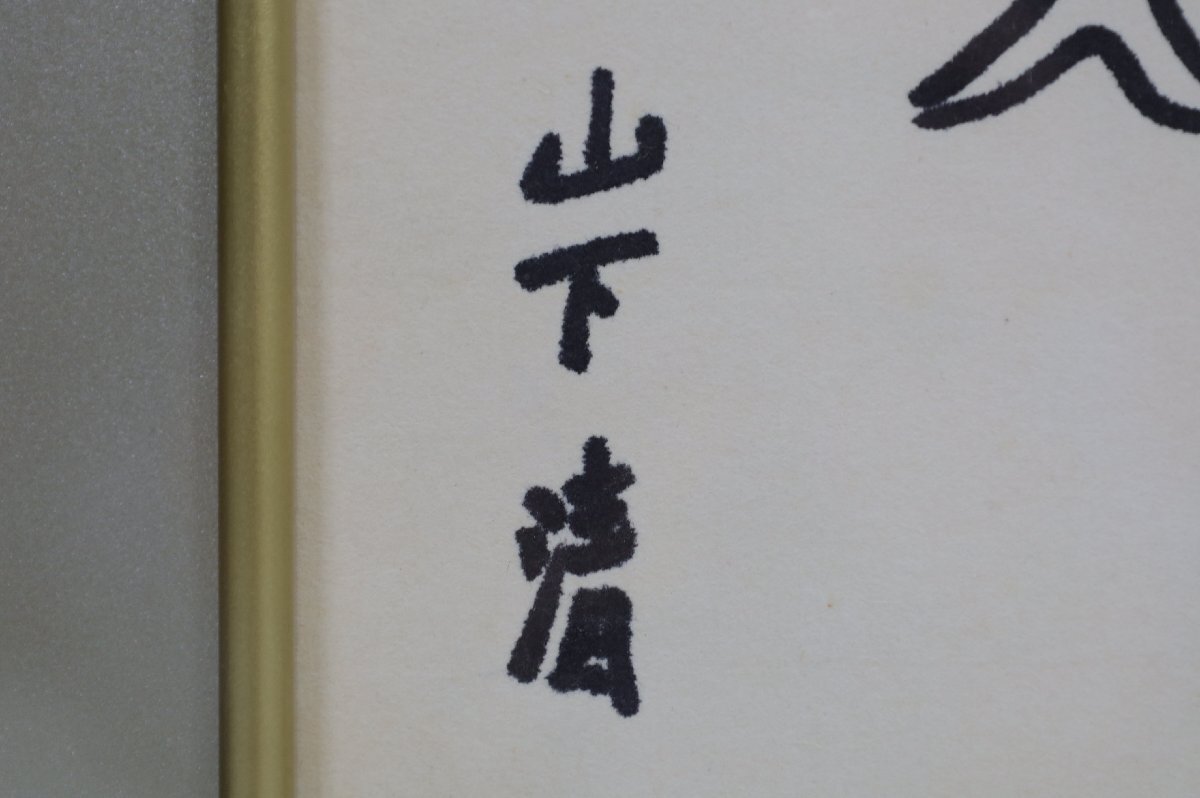 山下清